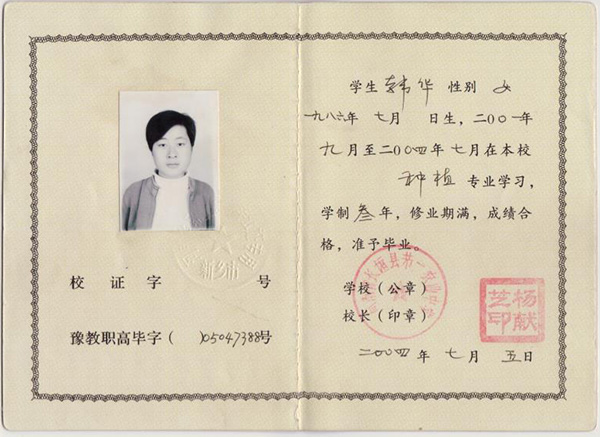 新乡市
校证字 号
豫教职高毕字( )05047388号
学生 韩华 性别 女
一九八六年 七月 日生,二〇〇一年
九月至二〇〇四年七月在本校
种植 专业学习,
学制叁年,修业期满,成绩合
格,准予毕业。
学校(公章)
校长(印章)
杨献芝印
二〇〇四年 七月 五日